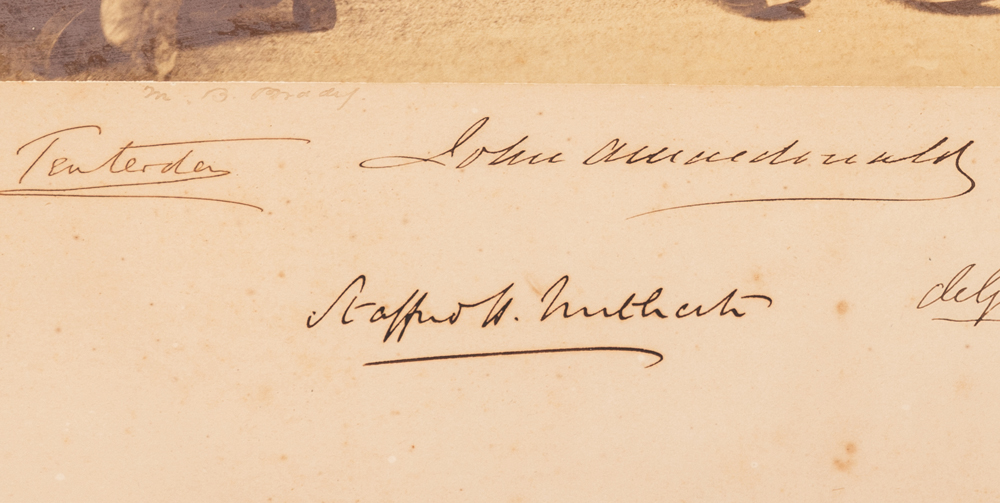 M. B. Brady.
Tenterden John A Macdonald
Stafford H. Northcote deG